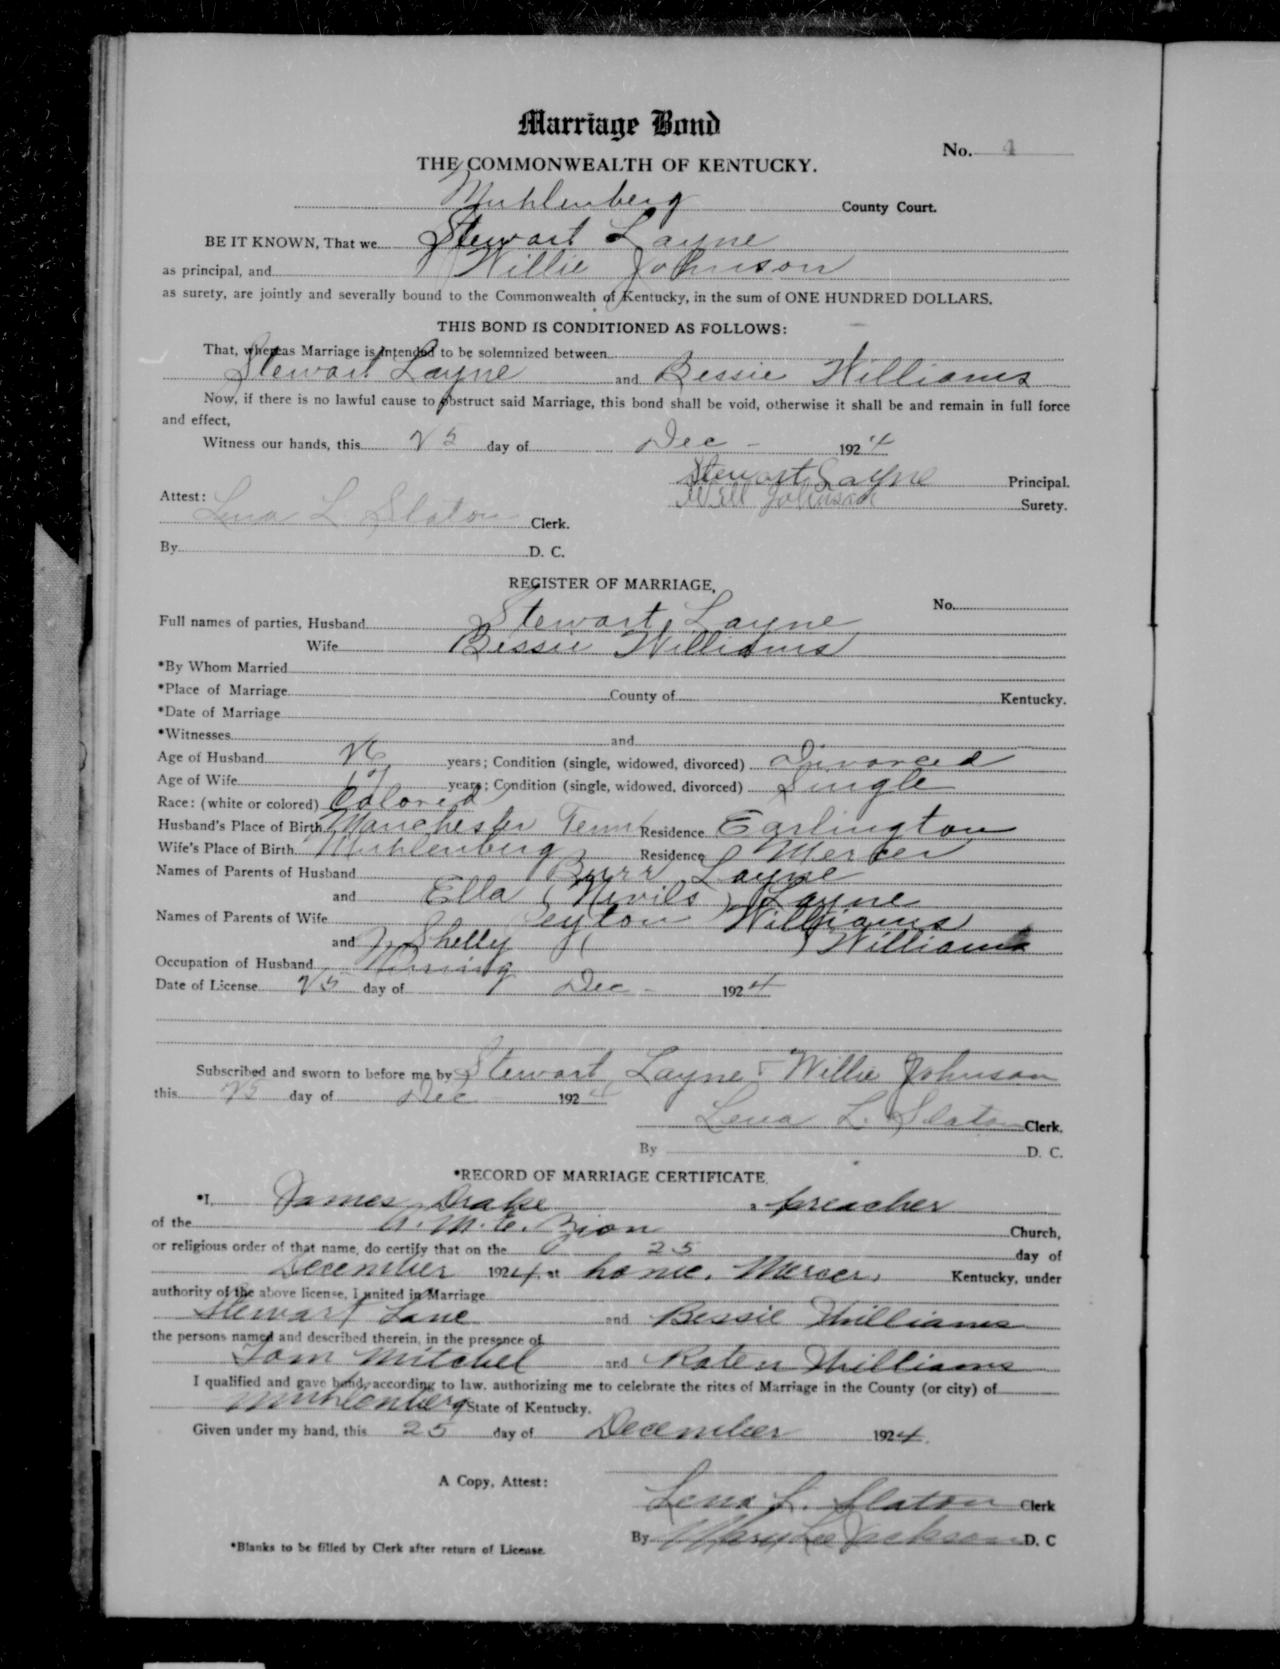 Marriage Bond
No. 4
THE COMMONWEALTH OF KENTUCKY.
Muhlenberg County Court.
BE IT KNOWN, That we Stewart Layne
as principal, and Willie Johnson
as surety, are jointly and severally bound to the Commonwealth of Kentucky, in the sum of ONE HUNDRED DOLLARS.
THIS BOND IS CONDITIONED AS FOLLOWS:
That, whereas Marriage is intended to be solemnized between
Stewart Layne and Bessie Williams
Now, if there is no lawful cause to obstruct said Marriage, this bond shall be void, otherwise it shall be and remain in full force
and effect,
Witness our hands, this 25 day of Dec - 1924
Stewart Layne Principal.
Attest: Will Johnson Surety.
Lena L Slaton Clerk.
By D. C.
REGISTER OF MARRIAGE,
No.
Full names of parties, Husband Stewart Layne
Wife Bessie Williams
*By Whom Married
*Place of Marriage County of Kentucky.
*Date of Marriage
*Witnesses and
Age of Husband 26 years; Condition (single, widowed, divorced) Divorced
Age of Wife years; Condition (single, widowed, divorced) Single
Race: (white or colored) Colored
Husband's Place of Birth Manchester Tenn Residence Earlington
Wife's Place of Birth Muhlenberg Residence Mercer
Names of Parents of Husband Burr Layne
and Ella (Nevils) Layne
Names of Parents of Wife Peyton Williams
and Shelly ( ) Williams
Occupation of Husband Mining
Date of License 25 day of Dec - 1924
Subscribed and sworn to before me by Stewart Layne & Willie Johnson
this 25 day of Dec 1924
Lena L. Slaton Clerk.
By D. C.
*RECORD OF MARRIAGE CERTIFICATE.
*I, James Drake a preacher
of the A. M. E. Zion Church,
or religious order of that name, do certify that on the 25 day of
December 1924, at home, Mercer, Kentucky, under
authority of the above license, I united in Marriage
Stewart Lane and Bessie Williams
the persons named and described therein, in the presence of
Tom Mitchel and Williams
I qualified and gave bond, according to law, authorizing me to celebrate the rites of Marriage in the County (or city) of
Muhlenberg State of Kentucky.
Given under my hand, this 25 day of December 1924.
A Copy, Attest:
Lena L. Slaton Clerk
By Mary Lee Jackson D. C
*Blanks to be filled by Clerk after return of License.